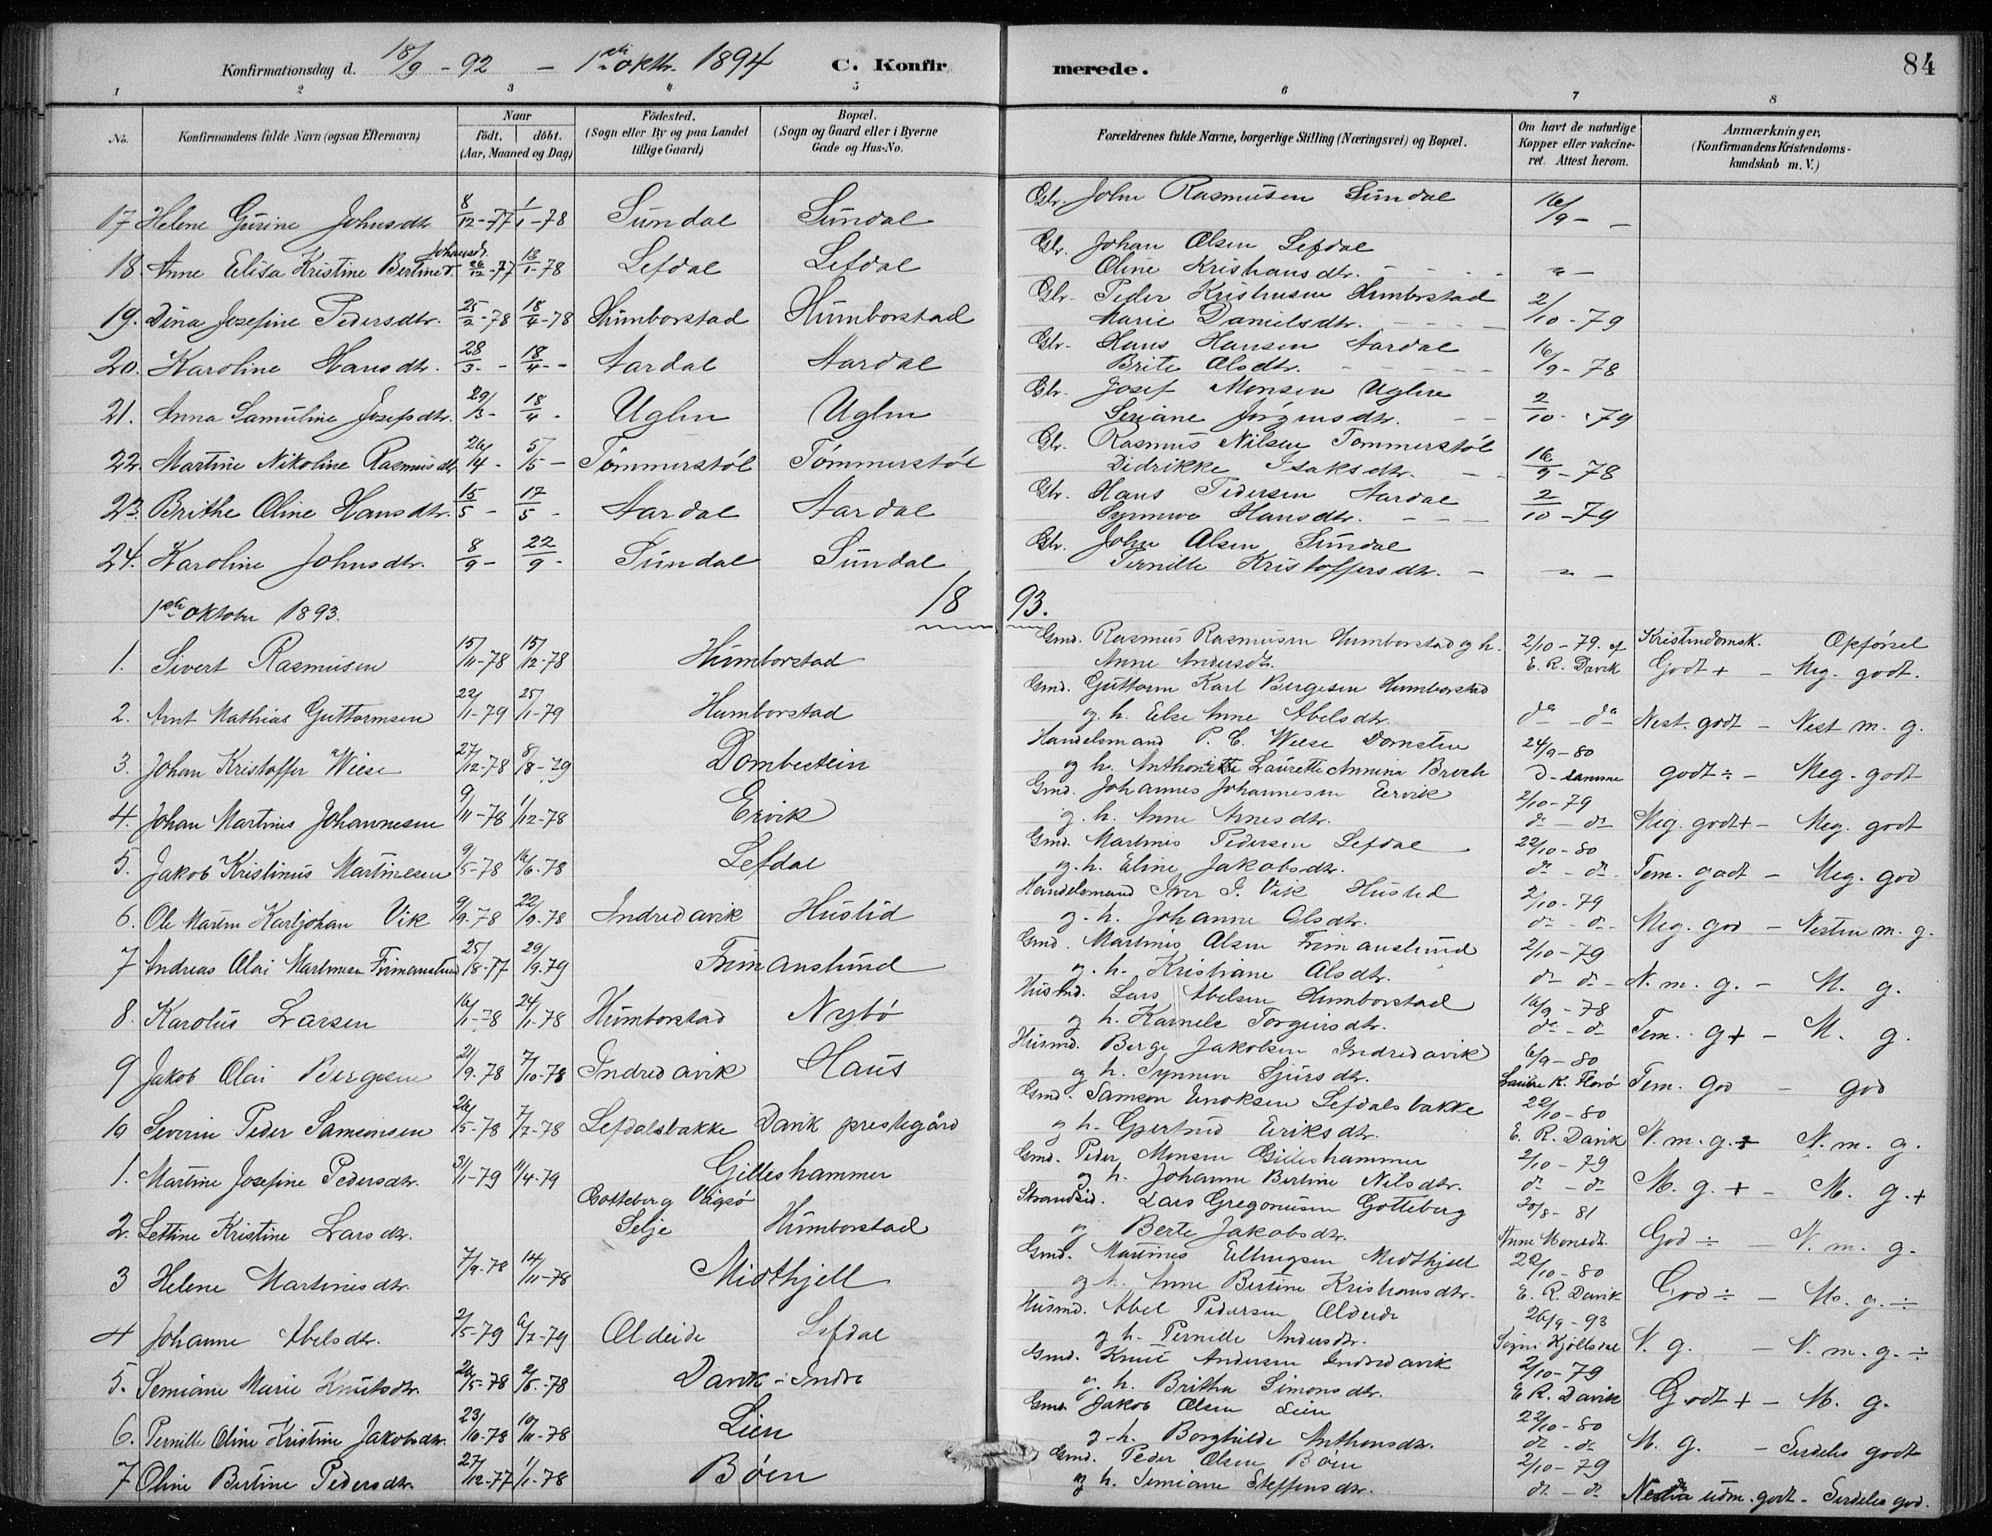 Konfirmationsdag d. 18/9 - 92 — 1ste oktbr. 1894 C. Konfirmerede. 84
1 2 3 4 5 6 7 8
No. Konfirmandens fulde Navn (ogsaa Efternavn) Naar født. døbt. (Aar, Maaned og Dag) Födested. (Sogn eller By og paa Landet tillige Gaard) Bopæl. (Sogn og Gaard eller i Byerne Gade og Hus-No. Forældrenes fulde Navne, borgerlige Stilling (Næringsvei) og Bopæl. Om havt de naturlige Kopper eller vakcineret. Attest herom. Anmærkninger. (Konfirmandens Kristendomskundskab m. V.)
17 Helene Gurine Johnsdtr. 8/12-77 1/1-78 Sundal Sundal Gbr. John Rasmusen Sundal 16/9 - –
18. Anne Elisa Kristine Bertine Johansd. 26/12-77 13/1-78 Lefdal Lefdal Gbr. Johan Olsen Lefdal
Oline Kristiansdtr. " –
19. Dina Josefine Pedersdtr. 25/2-78 18/4-78 Humborstad Humborstad Gbr. Peder Kristensen Humborstad
Marie Danielsdtr. 2/10-79
20. Karoline Hansdtr. 28/3 - 18/4 - Aardal Aardal Gbr. Hans Hansen Aardal
Brite Olsdtr. 16/9-78
21. Anna Samuline Josefsdtr. 29/3 - 18/4 - Uglen Uglen Gbr. Josef Monsen Uglen
Seriane Jørgensdtr. 2/10-79
22. Martine Nikoline Rasmusdtr. 26/4 - 5/5 - Tømmerstøl Tømmerstøl Gbr. Rasmus Nilsen Tømmerstøl
Didrikke Isaksdtr. 16/9-78
23. Brithe Oline Hansdtr. 15/5 - 17/5 - Aardal Aardal Gbr. Hans Pedersen Aardal
Synneve Hansdtr. 2/10-79
24. Karoline Johnsdtr. 8/9 - 22/9 - Sundal Sundal Gbr. John Olsen Sundal
Pernille Kristoffersdtr. " –
1ste oktober 1893. 18 93.
1. Sivert Rasmusen 15/11-78 15/12-78 Humborstad Gmd. Rasmus Rasmusen Humborstad og h. 2/10-79. af Kristendomsk. Opførsel
Anne Andersdtr. E. R. Davik Godt + – Meg. godt.
2. Arnt Mathias Guttormsen 22/1-79 25/1-79 Humborstad Gmd. Guttorm Karl Bergesen Humborstad
og h. Else Anne Abelsdtr. do – do Nest. godt – Nest m. g.
3. Johan Kristoffer Wiese 27/12-78 8/8-79 Dombestein Handelsmand P. C. Wiese Domsten 24/9-80
og h. Anthonette Laurette Annina Broch D- samme godt ÷ – Meg. godt
4. Johan Martines Johannesen 9/11-78 1/12-78 Ervik Gmd. Johannes Johannesen Ervik 2/10-79
og h. Anne Arnesdtr. do – do Meg. godt + – Meg. godt
5. Jakob Kristinus Martinesen 9/5-78 16/6-78 Lefdal Gmd. Martines Pedersen Lefdal 22/10-80
og h. Eline Jakobsdtr. do – do. Tem. godt – Meg. god
6. Ole Martin Karljohan Vik 9/9-78 22/9-78 Indredavik Hustid Handelsmand Iver J. Vik Hustid 2/10-79
og h. Johanne Olsdtr. do – do. Meg. god – Nesten m. g.
7 Andreas Olai Martinsen Frimanslund 25/18-77 29/19-79 Frimanslund Gmd. Martines Olsen Frimanslund 2/10-79
og h. Kristiane Olsdtr. do – do – N. m. g. – M. g.
8. Karolus Larsen 16/1-78 24/1-78 Humborstad Nybø Husmd. Lars Abelsen Humborstad 16/9-78
og h. Karnele Torgersdtr. do – do Tem. g + – M. g.
9 Jakob Olai Bergesen 21/9-78 7/10-78 Indredavik Haus Husmd. Berge Jakobsen Indredavik 6/9-80
og h. Synneve Sjursdtr. K. Florø Tem. God – god
10 Severin Peder Samsonsen 26/5-78 7/7-78 Lefdalsbakke Davik prestegård Gmd. Samson Enoksen Lefdalsbakke 22/10-80
og h. Gjertrud Eriksdtr. E. R. Davik N. m. g. + N. m. g.
1. Martine Josefine Pedersdtr. 31/1-79 11/4-79 Gilleshammer Gmd. Peder Monsen Gilleshammer 2/10-79
og h. Johanne Bertine Nilsdtr. do – do M. g. + – M. g. +
2. Lettine Kristine Larsdtr. Gotteberg Vågsø Selje Humborstad Strandsid. Lars Gregoriusen Gotteberg 20/8-81
og Berte Jakobsdtr. Anne Monsdtr. God ÷ N. m. g.
3 Helene Martinesdtr. 7/9-78 14/11-78 Midthjell Gmd. Martines Ellingsen Midthjell 22/10-80
og h. Anne Bertine Kristiansdtr. E. R. Davik God ÷ – M. g. ÷
4 Johanne Abelsdtr. 2/5-79 6/7-79 Oldeide Lefdal Husmd. Abel Pedersen Oldeide 26/9-93
og h. Pernille Andersdtr. Kjøllsdal N. g. – N. m. g. ÷
5. Semiane Marie Knutsdtr. 26/5-78 2/6-78 Davik - Indre Gmd. Knut Andersen Indredavik 2/10-79
og h. Britha Simonsdtr. E R. Davik Godt + – M. g.
6. Pernille Oline Kristine Jakobsdtr. 23/10-78 10/11-78 Lien Gmd. Jakob Olsen Lien 22/10-80
og h. Borghilde Anthonsdtr. do – do M. g. – Serdeles godt
7 Oline Bertine Pedersdtr. 27/12-77 1/1-78 Bøen Gmd. Peder Olsen Bøen 2/10-79
og h. Semiane Steffensdtr. do – do Nesten udm. godt – Serdeles god.